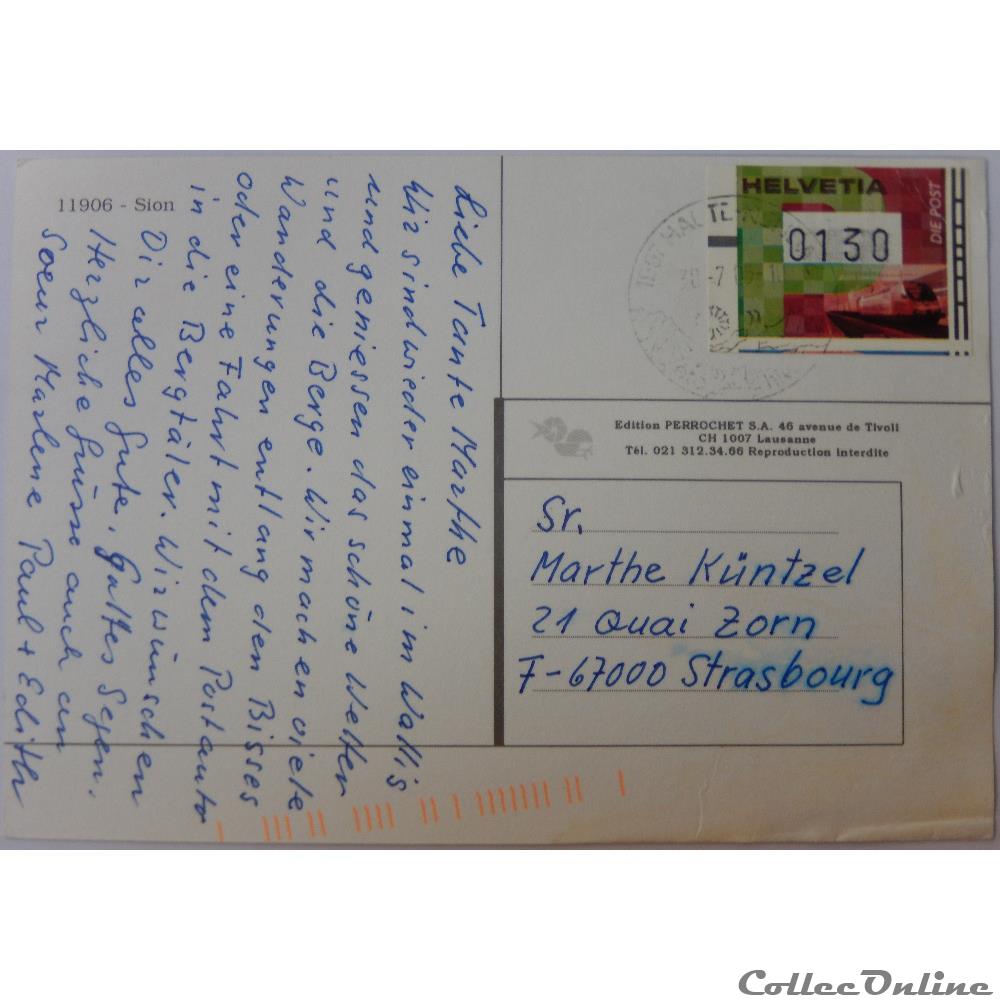 11906 - Sion
Liebe Tante Marthe
Wir sind wieder einmal im Wallis
und geniessen das schöne Wetter
und die Berge. Wir machen viele
Wanderungen entlang den Bisses
oder eine Fahrt mit dem Postauto
in die Bergtäler. Wir wünschen
Dir alles Gute, Gottes Segen.
Herzliche Grüsse auch an
Soeur Marlene Paul + Edith
HELVETIA
0130
DIE POST
Edition PERROCHET S.A. 46 avenue de Tivoli
CH 1007 Lausanne
Tél. 021 312.34.66 Reproduction interdite
Sr.
Marthe Küntzel
21 Quai Zorn
F-67000 Strasbourg
CollecOnline